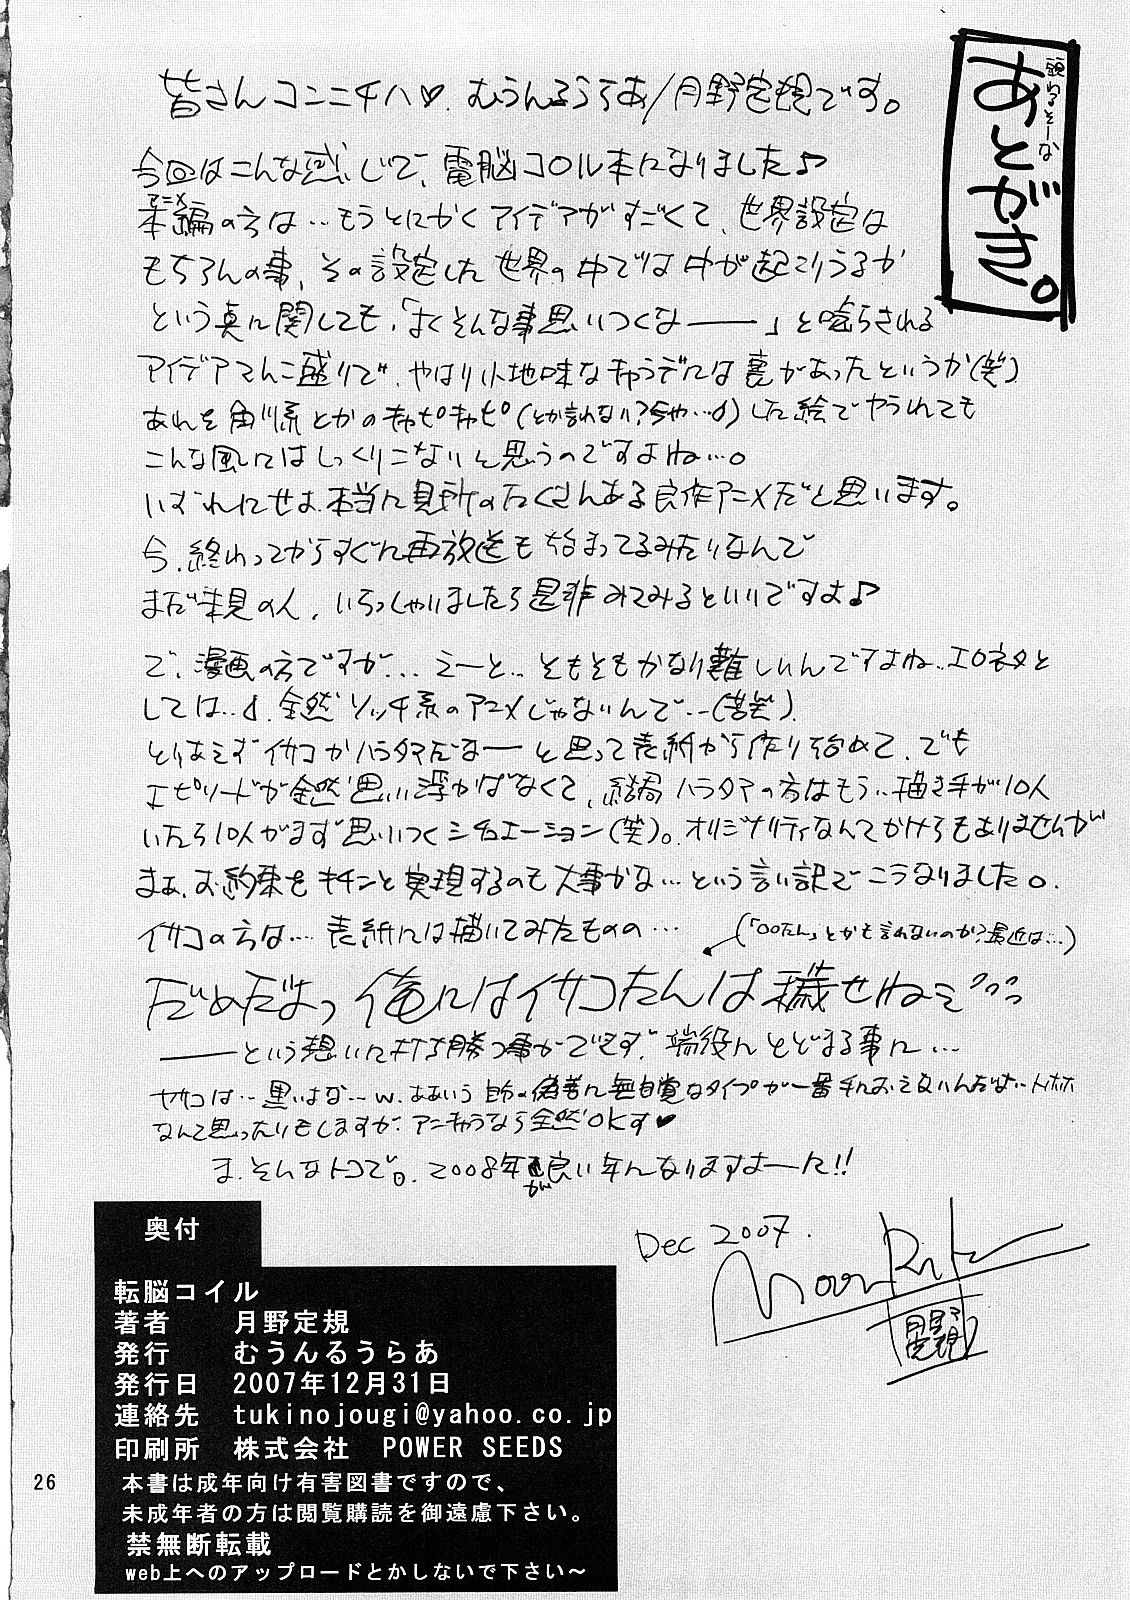 頭わるそーな
あとがき。
皆さんコンニチハ♡. むうんるうらあ/月野定規です。
今回はこんな感じで、電脳コイル本になりました♪
アニメ
本編の方は…もうとにかくアイデアがすごくて、世界設定は
もちろんの事、その設定した世界の中では何が起こりうるか
という点に関しても、「よくそんな事思いつくな――」と唸らされる
アイデアてんこ盛りで、やはり地味なキャラデには裏があったというか(笑)
あれを角川系とかのキャピキャピ(とか言わない?今や…)した絵でやられても
こんな風にはしっくりこないと思うのですよね…。
いずれにせよ、本当に見所のたくさんある良作アニメだと思います。
今、終わってからすぐに再放送も始まってるみたいなんで
まだ未見の人、いらっしゃいましたら是非みてみるといいですよ♪
で、漫画の方ですが…えーと…そもそもかなり難しいんですよね…エロネタと
しては…。全然ソッチ系のアニメじゃないんで…(苦笑).
とりあえずイサコかハラケンだなーと思って表紙から作り始めて、でも
エピソードが全然思い浮かばなくて、結局 の方はもう…描き手が10人
いたら10人がまず思いつくシチュエーション(笑)。オリジナリティなんてかけらもありませんが
まぁ、お約束をキチンと実現するのも大事かな…という言い訳でこうなりました。
イサコの方は…表紙には描いてみたものの…
(「○○たん」とかも言わないのか?最近は…)
だめだよっ 俺にはイサコたんは穢せねぇ
――という想いに打ち勝つ事ができず、端役にとどまる事に…
ヤサコは…黒いよな…w. ああいう自分の偽善に無自覚なタイプが一番手におえないんだよ…トホホ
なんて思ったりもしますが、アニキャラなら全然OKす♥
ま、そんなトコで。2008年が良い年になりますよーに!!
Dec 2007.
月野定規
奥付
転脳コイル
著者 月野定規
発行 むうんるうらあ
発行日 2007年12月31日
連絡先 tukinojougi@yahoo.co.jp
印刷所 株式会社 POWER SEEDS
本書は成年向け有害図書ですので、
未成年者の方は閲覧購読を御遠慮下さい。
禁無断転載
web上へのアップロードとかしないで下さい〜
26